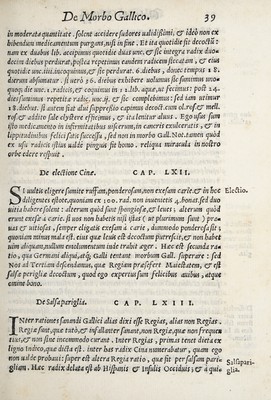 De Morbo Gallico. 39
in moderata quantitate. solent accidere sudores ualidissimi, & ideò non ex
bibendum medicamentum purgans, nisi in fine. Et ita quotidie sit decoctū
nam ex duabus lib. accipimus quotidie duas unc. & sic integra radix duo
decim diebus perdurat. postea repetimus eandem radicem siccatam, & eius
quotidie unc. iiii. incoquimus, & sic perdurat 6. diebus, donec tempus 18.
dierum absumatur. si uerò 36. diebus exhibere uolumus
quoq; de unc. i. radicis, & coquimus in i. lib. aquæ, ut fecimus: post 24.
dies sumimus repetita radic. unc. & sic complebimus: sed iam utimur
18. diebus. si autem sit alui suppressio capimus decoctum el. ros. & mell.
ros. & addito sale clystere efficimus, & ita lenitur aluus. Ego usus sum
isto medicamento in infirmitatibus uiscerum, in canceris exulceratis, & in
lippitudinibus felici satis successu, sed non in morbo Gall. Not. tantū quid
ex usu radicis istius ualde pinguis fit homo. reliqua miracula in nostro
orbe edere respuit.
De electione Cinæ. CAP. LXII.
SI uultis eligere sumite russam, ponderosam, non exesam carie. & in hoc
diligentes estote, quoniam ex 100. rad. non inuenietis 4. bonas. sed duo
uitia habere solent: alterum quòd sunt spongiosæ, & leues; alterum quòd
erunt exesæ à carie. si uos non habetis nisi istas (ut plurimum sunt) præ
uas & uitiosas, semper eligatis exesam à carie, dummodo ponderosa sit;
quoniam minus mala est. eius quæ leuis est decoctum
in aliquam, nullum emolumentum inde trahit æger. Hæc est secunda ra
dix, qua Germani aliquād; Galli tentant morbum Gall. superare: sed de
Nos ad Tertiam desendimus, quæ Regiam præsefert Maiestatem, & est
salsa periglia decoctum, quod ego expertus sum felicibus auibus, atque
omine bono.
Electio.
De Salsaperiglia. CAP. LXIII.
INter rationes sanandi Gallici alias dixi esse Regias, alias non Regias.
Regiæ sunt, quæ titò, & infallanter sanant, non Regiæ, quæ non frequen
tius, & non sine incommodo curant. Inter Regias, primas tenet dieta ex
ligno Indico, quæ dicta est. inter has radix Cina numerabatur, quam ego
non ualde probaui: superest altera Regia ratio, quæ fit per salsam pari-
gliam. Hæc radix delata est ab Hispanis è Insulis Occiduis; & à qui-
Salsapari-
glia.